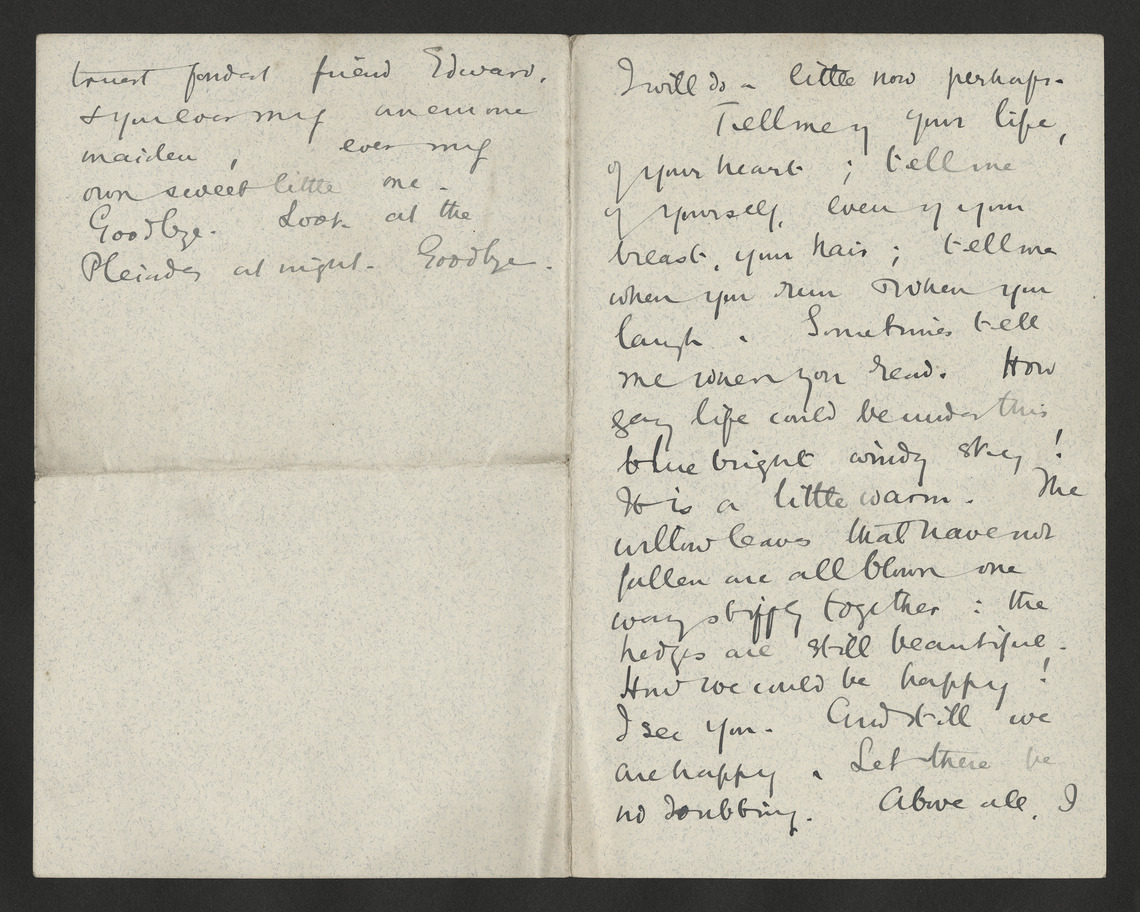 truest fondest friend Edward.
& you ever my anemone
maiden, ever my
own sweet little one.
Goodbye. Look at the
Pleiades at night. Goodbye.
I will do a little now perhaps.
Tell me of your life,
of your heart; tell me
of yourself, even of your
breast, your hair; tell me
when you run & when you
laugh. Sometimes tell
me when you read. How
gay life could be under this
blue bright windy sky!
It is a little warm. The
willow leaves that have not
fallen are all blown one
way stiffly together: the
hedges are still beautiful.
How we could be happy!
I see you. And still we
are happy. Let there be
no doubting. Above all, I